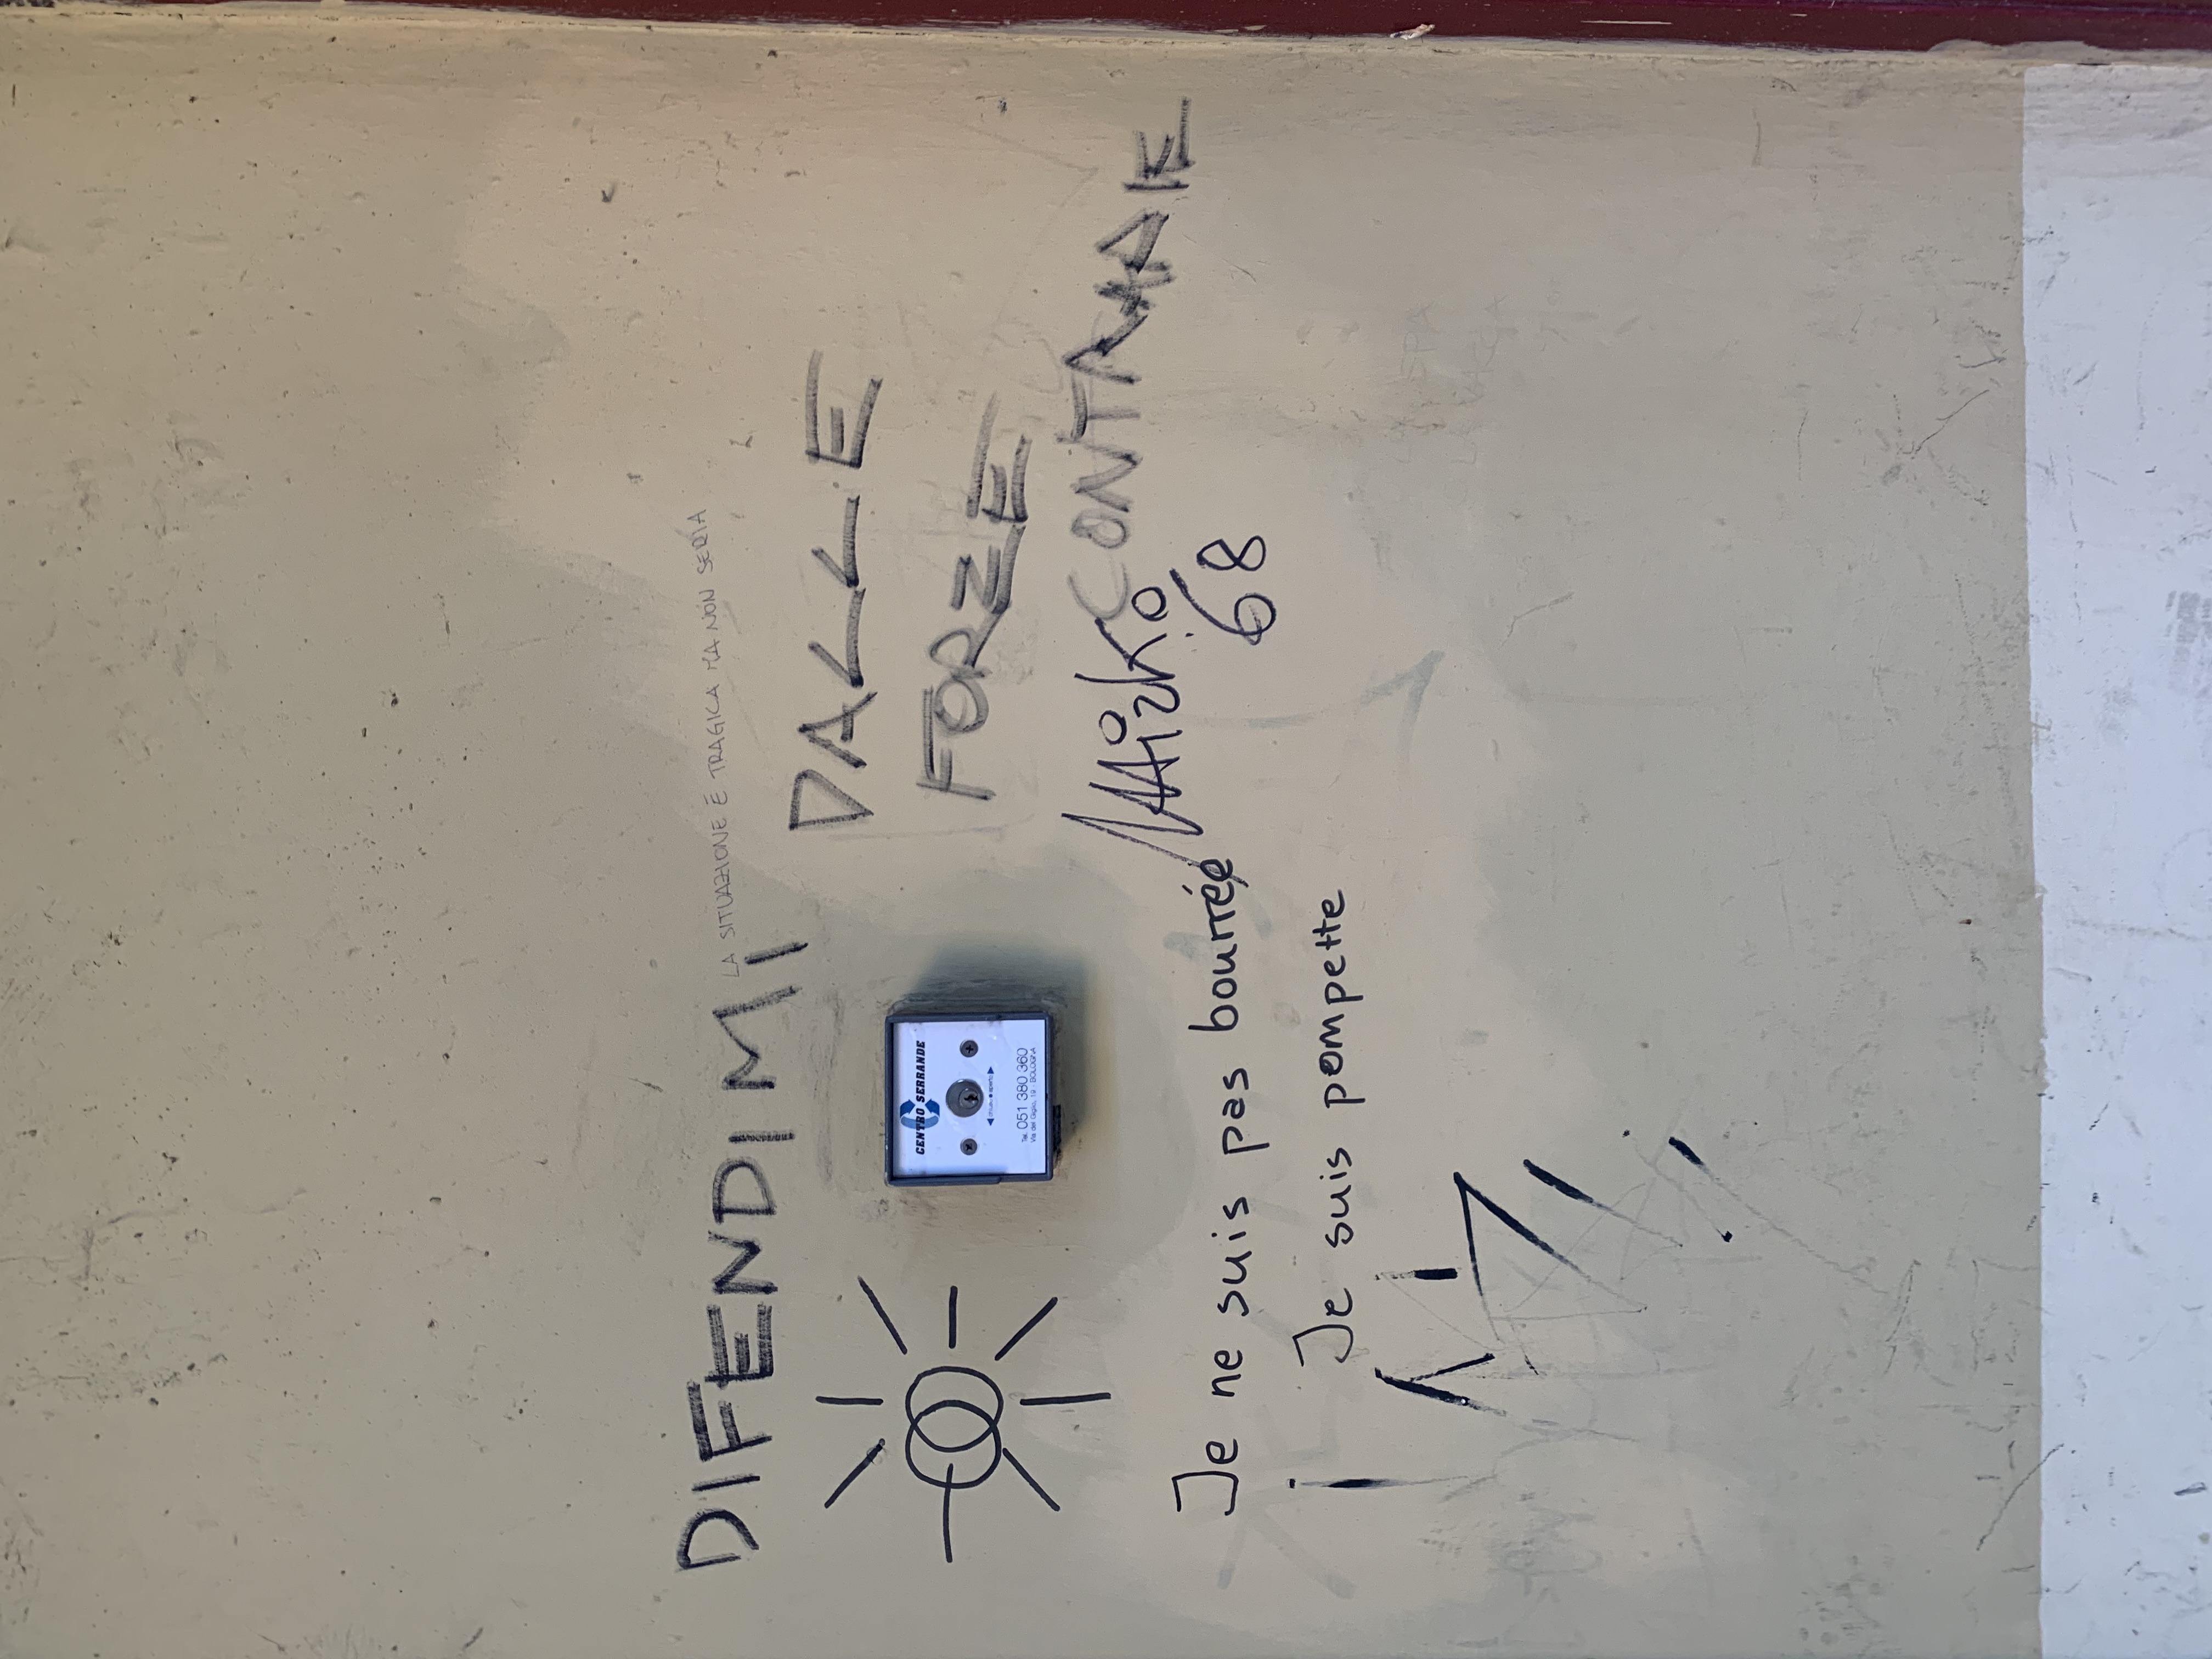 DIFENDIMI
LA SITUAZIONE È TRAGICA MA NON SERIA
DALLE
FORZE
CONTRARIE
CENTRO SERRANDE
chiuso aperto
Tel. 051 380 360
Via del Giglio, 19 - BOLOGNA
Mirko
68
Je ne suis pas bourrée
Je suis pompette